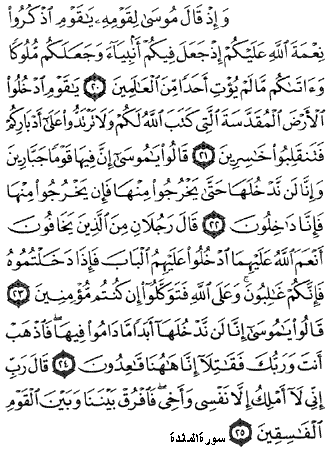 وَإِذْ قَالَ مُوسَىٰ لِقَوْمِهِۦ يَـٰقَوْمِ ٱذْكُرُوا۟
نِعْمَةَ ٱللَّهِ عَلَيْكُمْ إِذْ جَعَلَ فِيكُمْ أَنۢبِيَآءَ وَجَعَلَكُم مُّلُوكًا
وَءَاتَىٰكُم مَّا لَمْ يُؤْتِ أَحَدًا مِّنَ ٱلْعَـٰلَمِينَ ٢٠ يَـٰقَوْمِ ٱدْخُلُوا۟
ٱلْأَرْضَ ٱلْمُقَدَّسَةَ ٱلَّتِى كَتَبَ ٱللَّهُ لَكُمْ وَلَا تَرْتَدُّوا۟ عَلَىٰٓ أَدْبَارِكُمْ
فَتَنقَلِبُوا۟ خَـٰسِرِينَ ٢١ قَالُوا۟ يَـٰمُوسَىٰٓ إِنَّ فِيهَا قَوْمًا جَبَّارِينَ
وَإِنَّا لَن نَّدْخُلَهَا حَتَّىٰ يَخْرُجُوا۟ مِنْهَا فَإِن يَخْرُجُوا۟ مِنْهَا
فَإِنَّا دَٰخِلُونَ ٢٢ قَالَ رَجُلَانِ مِنَ ٱلَّذِينَ يَخَافُونَ
أَنْعَمَ ٱللَّهُ عَلَيْهِمَا ٱدْخُلُوا۟ عَلَيْهِمُ ٱلْبَابَ فَإِذَا دَخَلْتُمُوهُ
فَإِنَّكُمْ غَـٰلِبُونَ ۚ وَعَلَى ٱللَّهِ فَتَوَكَّلُوٓا۟ إِن كُنتُم مُّؤْمِنِينَ ٢٣
قَالُوا۟ يَـٰمُوسَىٰٓ إِنَّا لَن نَّدْخُلَهَآ أَبَدًا مَّا دَامُوا۟ فِيهَا ۖ فَٱذْهَبْ
أَنتَ وَرَبُّكَ فَقَـٰتِلَآ إِنَّا هَـٰهُنَا قَـٰعِدُونَ ٢٤ قَالَ رَبِّ
إِنِّى لَآ أَمْلِكُ إِلَّا نَفْسِى وَأَخِى ۖ فَٱفْرُقْ بَيْنَنَا وَبَيْنَ ٱلْقَوْمِ
ٱلْفَـٰسِقِينَ ٢٥ سورة المائدة